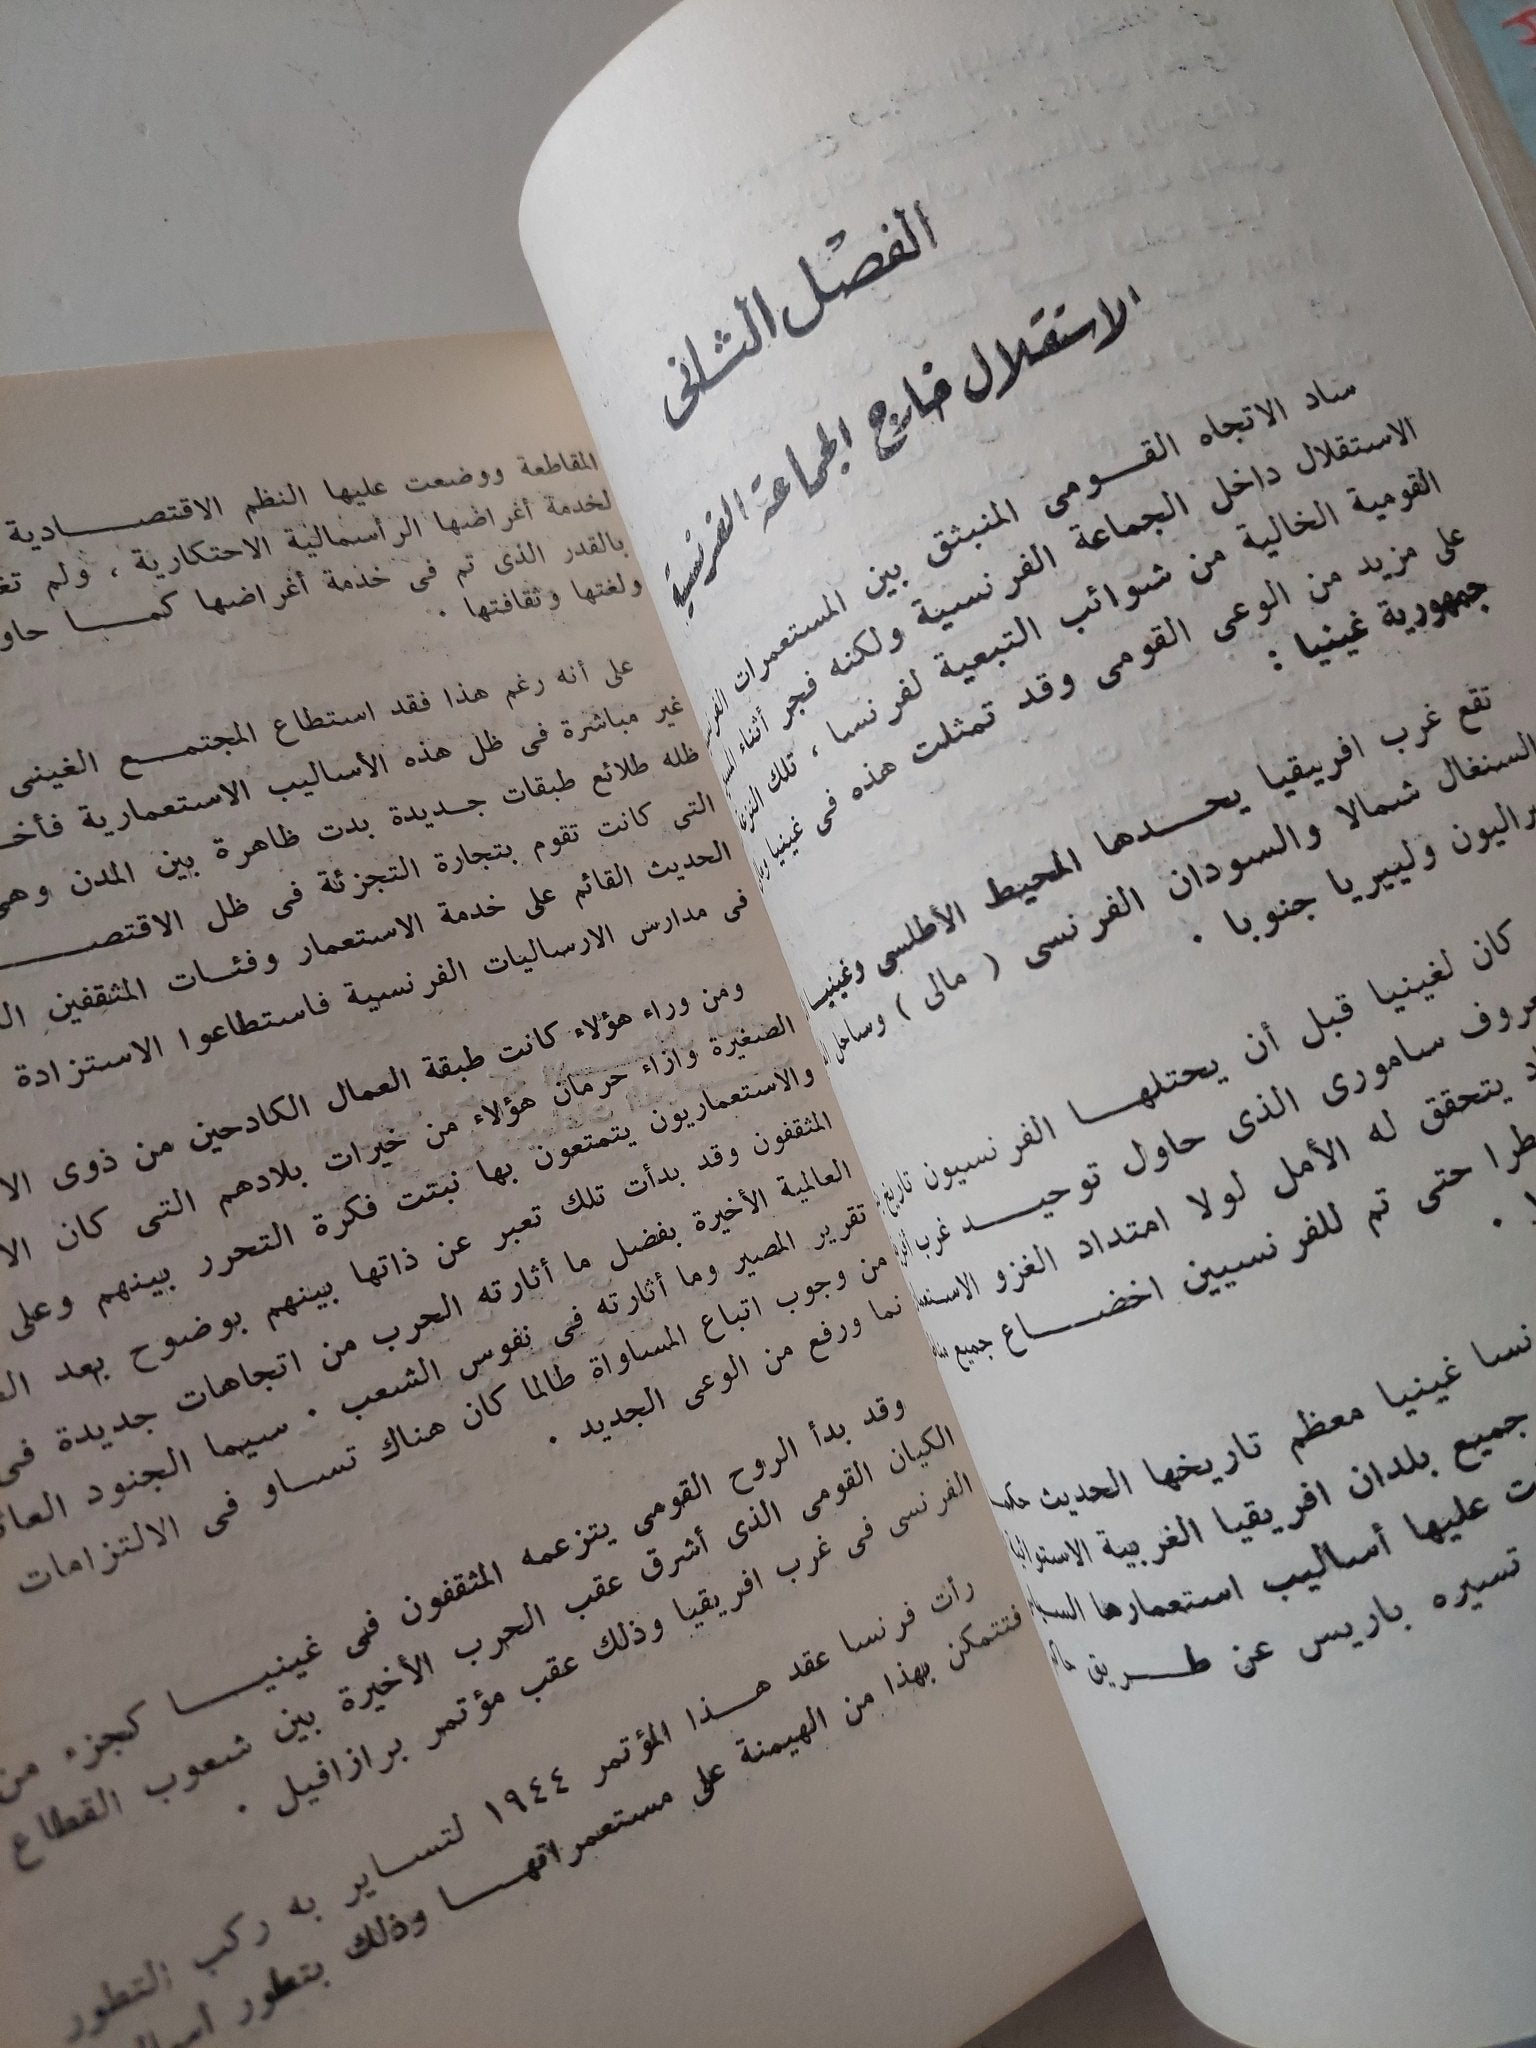 الفصل الثانى
الاستقلال خارج الجماعة الفرنسية
ساد الاتجاه القومى المنبثق بين المستعمرات
الاستقلال داخل الجماعة الفرنسية ولكنه فجر أثناء
القومية الخالية من شوائب التبعية لفرنسا ، تلك
على مزيد من الوعى القومى وقد تمثلت هذه فى غينيا
جمهورية غينيا :
تقع غرب افريقيا يحدها المحيط الأطلسى وغينيا
السنغال شمالا والسودان الفرنسى ( مالى ) وساحل
وليبيريا جنوبا .
كان لغينيا قبل أن يحتلها الفرنسيون تاريخ
سامورى الذى حاول توحيد غرب
يتحقق له الأمل لولا امتداد الغزو
حتى تم للفرنسيين اخضاع جميع
غينيا معظم تاريخها الحديث
جميع بلدان افريقيا الغربية الاستوائية
عليها أساليب استعمارها
تسيره باريس عن طريق
المقاطعة ووضعت عليها النظم الاقتصادية
لخدمة أغراضها الرأسمالية الاحتكارية ، ولم
بالقدر الذى تم فى خدمة أغراضها كما
ولغتها وثقافتها .
على أنه رغم هذا فقد استطاع المجتمع الغينى
غير مباشرة فى ظل هذه الأساليب الاستعمارية
ظله طلائع طبقات جديدة بدت ظاهرة بين المدن
التى كانت تقوم بتجارة التجزئة فى ظل
الحديث القائم على خدمة الاستعمار وفئات المثقفين
فى مدارس الارساليات الفرنسية فاستطاعوا الاستزادة
ومن وراء هؤلاء كانت طبقة العمال الكادحين من ذوى
الصغيرة وازاء حرمان هؤلاء من خيرات بلادهم التى كان
والاستعماريون يتمتعون بها نبتت فكرة التحرر بينهم وعلى
المثقفون وقد بدأت تلك تعبر عن ذاتها بينهم بوضوح بعد
العالمية الأخيرة بفضل ما أثارته الحرب من اتجاهات جديدة فى
تقرير المصير وما أثارته فى نفوس الشعب . سيما الجنود
من وجوب اتباع المساواة طالما كان هناك تساو فى الالتزامات
نما ورفع من الوعى الجديد .
وقد بدأ الروح القومى يتزعمه المثقفون فى غينيا كجزء من
الكيان القومى الذى أشرق عقب الحرب الأخيرة بين شعوب القطاع
الفرنسى فى غرب افريقيا وذلك عقب مؤتمر برازافيل .
رأت فرنسا عقد هذا المؤتمر ١٩٤٤ لتساير به ركب التطور
فتتمكن بهذا من الهيمنة على مستعمراتها وذلك بتطور